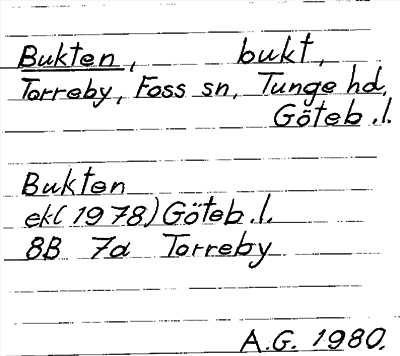 Bukten, bukt,
Torreby, Foss sn, Tunge hd,
Göteb.l.
Bukten
ek(1978) Göteb.l.
8B 7a Torreby
A.G. 1980.